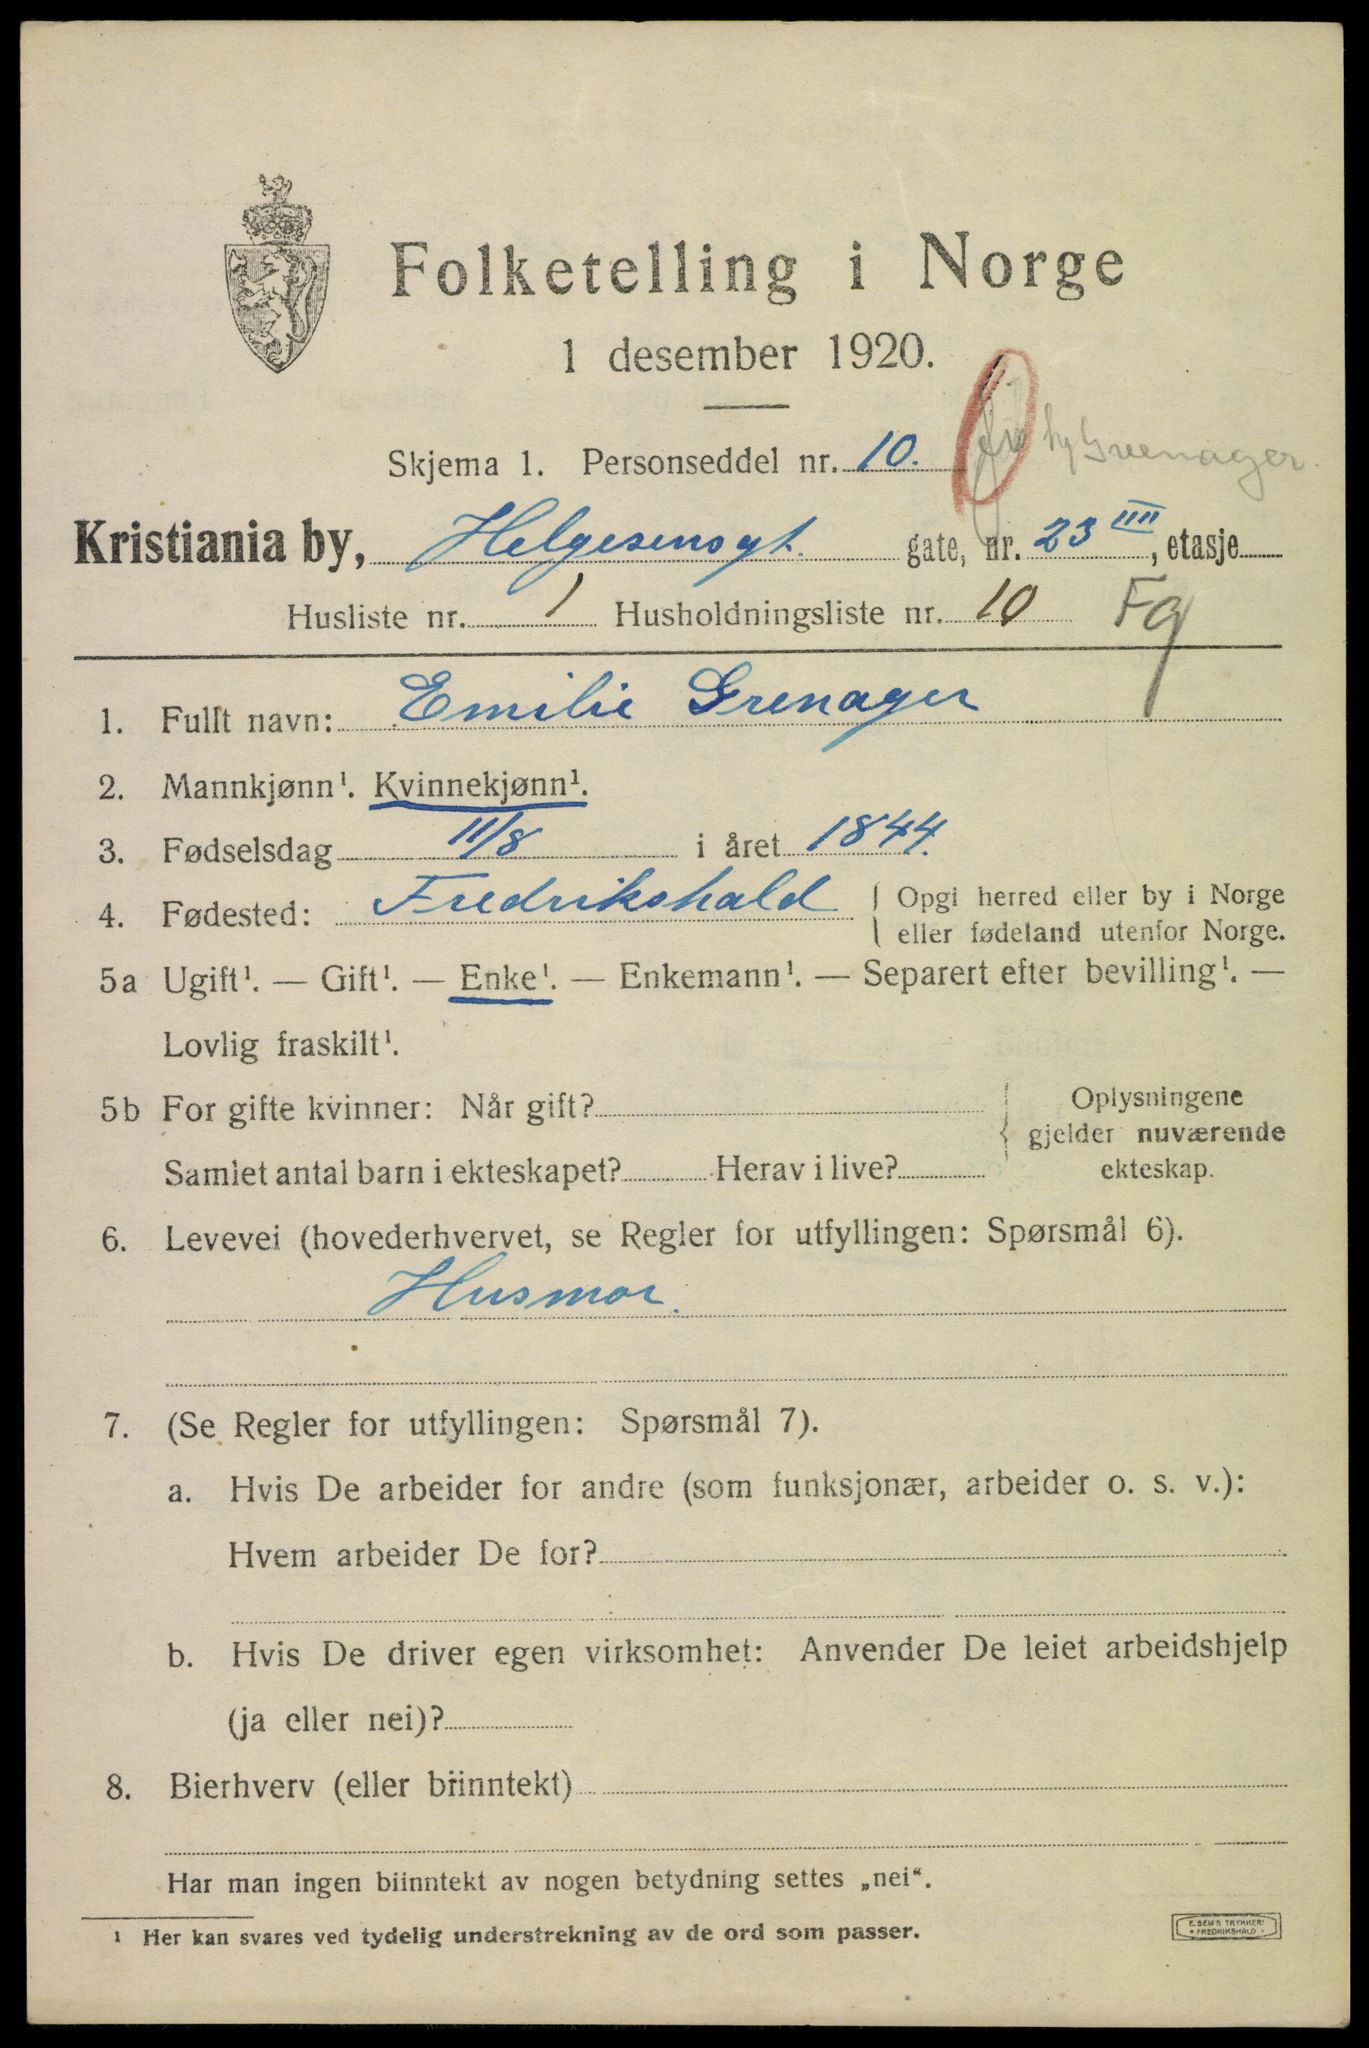 Folketelling i Norge
1 desember 1920.
Skjema 1. Personseddel nr. 10.
hy Greenager.
Kristiania by, Helgesensgt. gate, nr. 23 IIII, etasje
Husliste nr. 1 Husholdningsliste nr. 10 Fg
1. Fullt navn: Emilie Grenager
2. Mannkjønn¹. Kvinnekjønn¹.
3. Fødselsdag 11/8 i året 1844.
4. Fødested: Fredrikshald { Opgi herred eller by i Norge
eller fødeland utenfor Norge.
5a Ugift¹. — Gift¹. — Enke¹. — Enkemann¹. — Separert efter bevilling¹. —
Lovlig fraskilt¹.
5b For gifte kvinner: Når gift?
Samlet antal barn i ekteskapet? Herav i live?
Oplysningene
gjelder nuværende
ekteskap.
6. Levevei (hovederhvervet, se Regler for utfyllingen: Spørsmål 6).
Husmor.
7. (Se Regler for utfyllingen: Spørsmål 7).
a. Hvis De arbeider for andre (som funksjonær, arbeider o. s. v.):
Hvem arbeider De for?
b. Hvis De driver egen virksomhet: Anvender De leiet arbeidshjelp
(ja eller nei)?
8. Bierhverv (eller biinntekt)
Har man ingen biinntekt av nogen betydning settes „nei“.
¹ Her kan svares ved tydelig understrekning av de ord som passer.
E. SEM'S TRYKKERI
* FREDRIKSHALD *